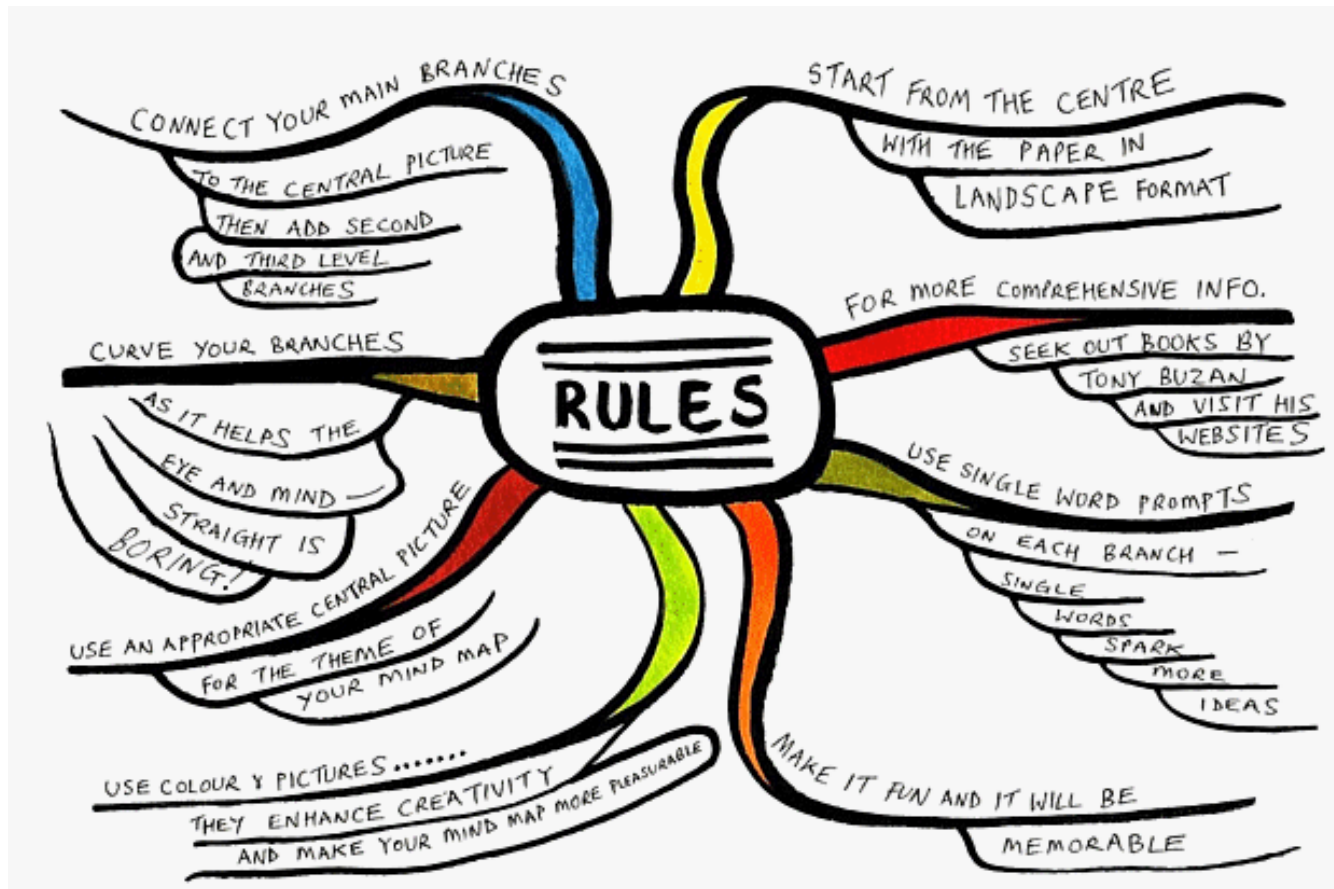 RULES
START FROM THE CENTRE
WITH THE PAPER IN
LANDSCAPE FORMAT
FOR MORE COMPREHENSIVE INFO.
SEEK OUT BOOKS BY
TONY BUZAN
AND VISIT HIS
WEBSITES
USE SINGLE WORD PROMPTS
ON EACH BRANCH —
SINGLE
WORDS
SPARK
MORE
IDEAS
MAKE IT FUN AND IT WILL BE
MEMORABLE
USE COLOUR & PICTURES.......
THEY ENHANCE CREATIVITY
AND MAKE YOUR MIND MAP MORE PLEASURABLE
USE AN APPROPRIATE CENTRAL PICTURE
FOR THE THEME OF
YOUR MIND MAP
CURVE YOUR BRANCHES
AS IT HELPS THE
EYE AND MIND —
STRAIGHT IS
BORING!
CONNECT YOUR MAIN BRANCHES
TO THE CENTRAL PICTURE
THEN ADD SECOND
AND THIRD LEVEL
BRANCHES